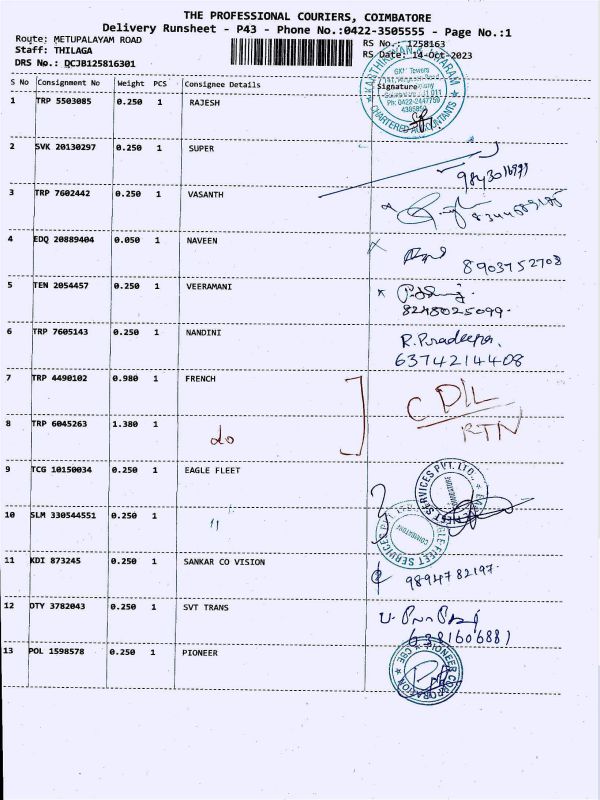 THE PROFESSIONAL COURIERS, COIMBATORE
Delivery Runsheet - P43 - Phone No.:0422-3505555 - Page No.:1
Route: METUPALAYAM ROAD
Staff: THILAGA
DRS No.: DCJB125816301
RS No.: 1258163
RS Date: 14-Oct-2023
S No Consignment No Weight PCS Consignee Details Signature
1 TRP 5503085 0.250 1 RAJESH
CHARTERED ACCOUNTANTS
GKT Towers
2 SVK 20130297 0.250 1 SUPER
3 TRP 7602442 0.250 1 VASANTH
4 EDQ 20889404 0.050 1 NAVEEN 8903752708
5 TEN 2054457 0.250 1 VEERAMANI
8248025099.
6 TRP 7605143 0.250 1 NANDINI R.Pradeepa.
6374214408
7 TRP 4490102 0.980 1 FRENCH
8 TRP 6045263 1.380 1 do
C D/L
RTN
9 TCG 10150034 0.250 1 EAGLE FLEET
EAGLE FLEET SERVICES PVT. LTD.,
COIMBATORE
10 SLM 330544551 0.250 1 "
11 KDI 873245 0.250 1 SANKAR CO VISION 9894782197.
12 DTY 3782043 0.250 1 SVT TRANS
6381606881
13 POL 1598578 0.250 1 PIONEER
PIONEER CORPORATION
CBE